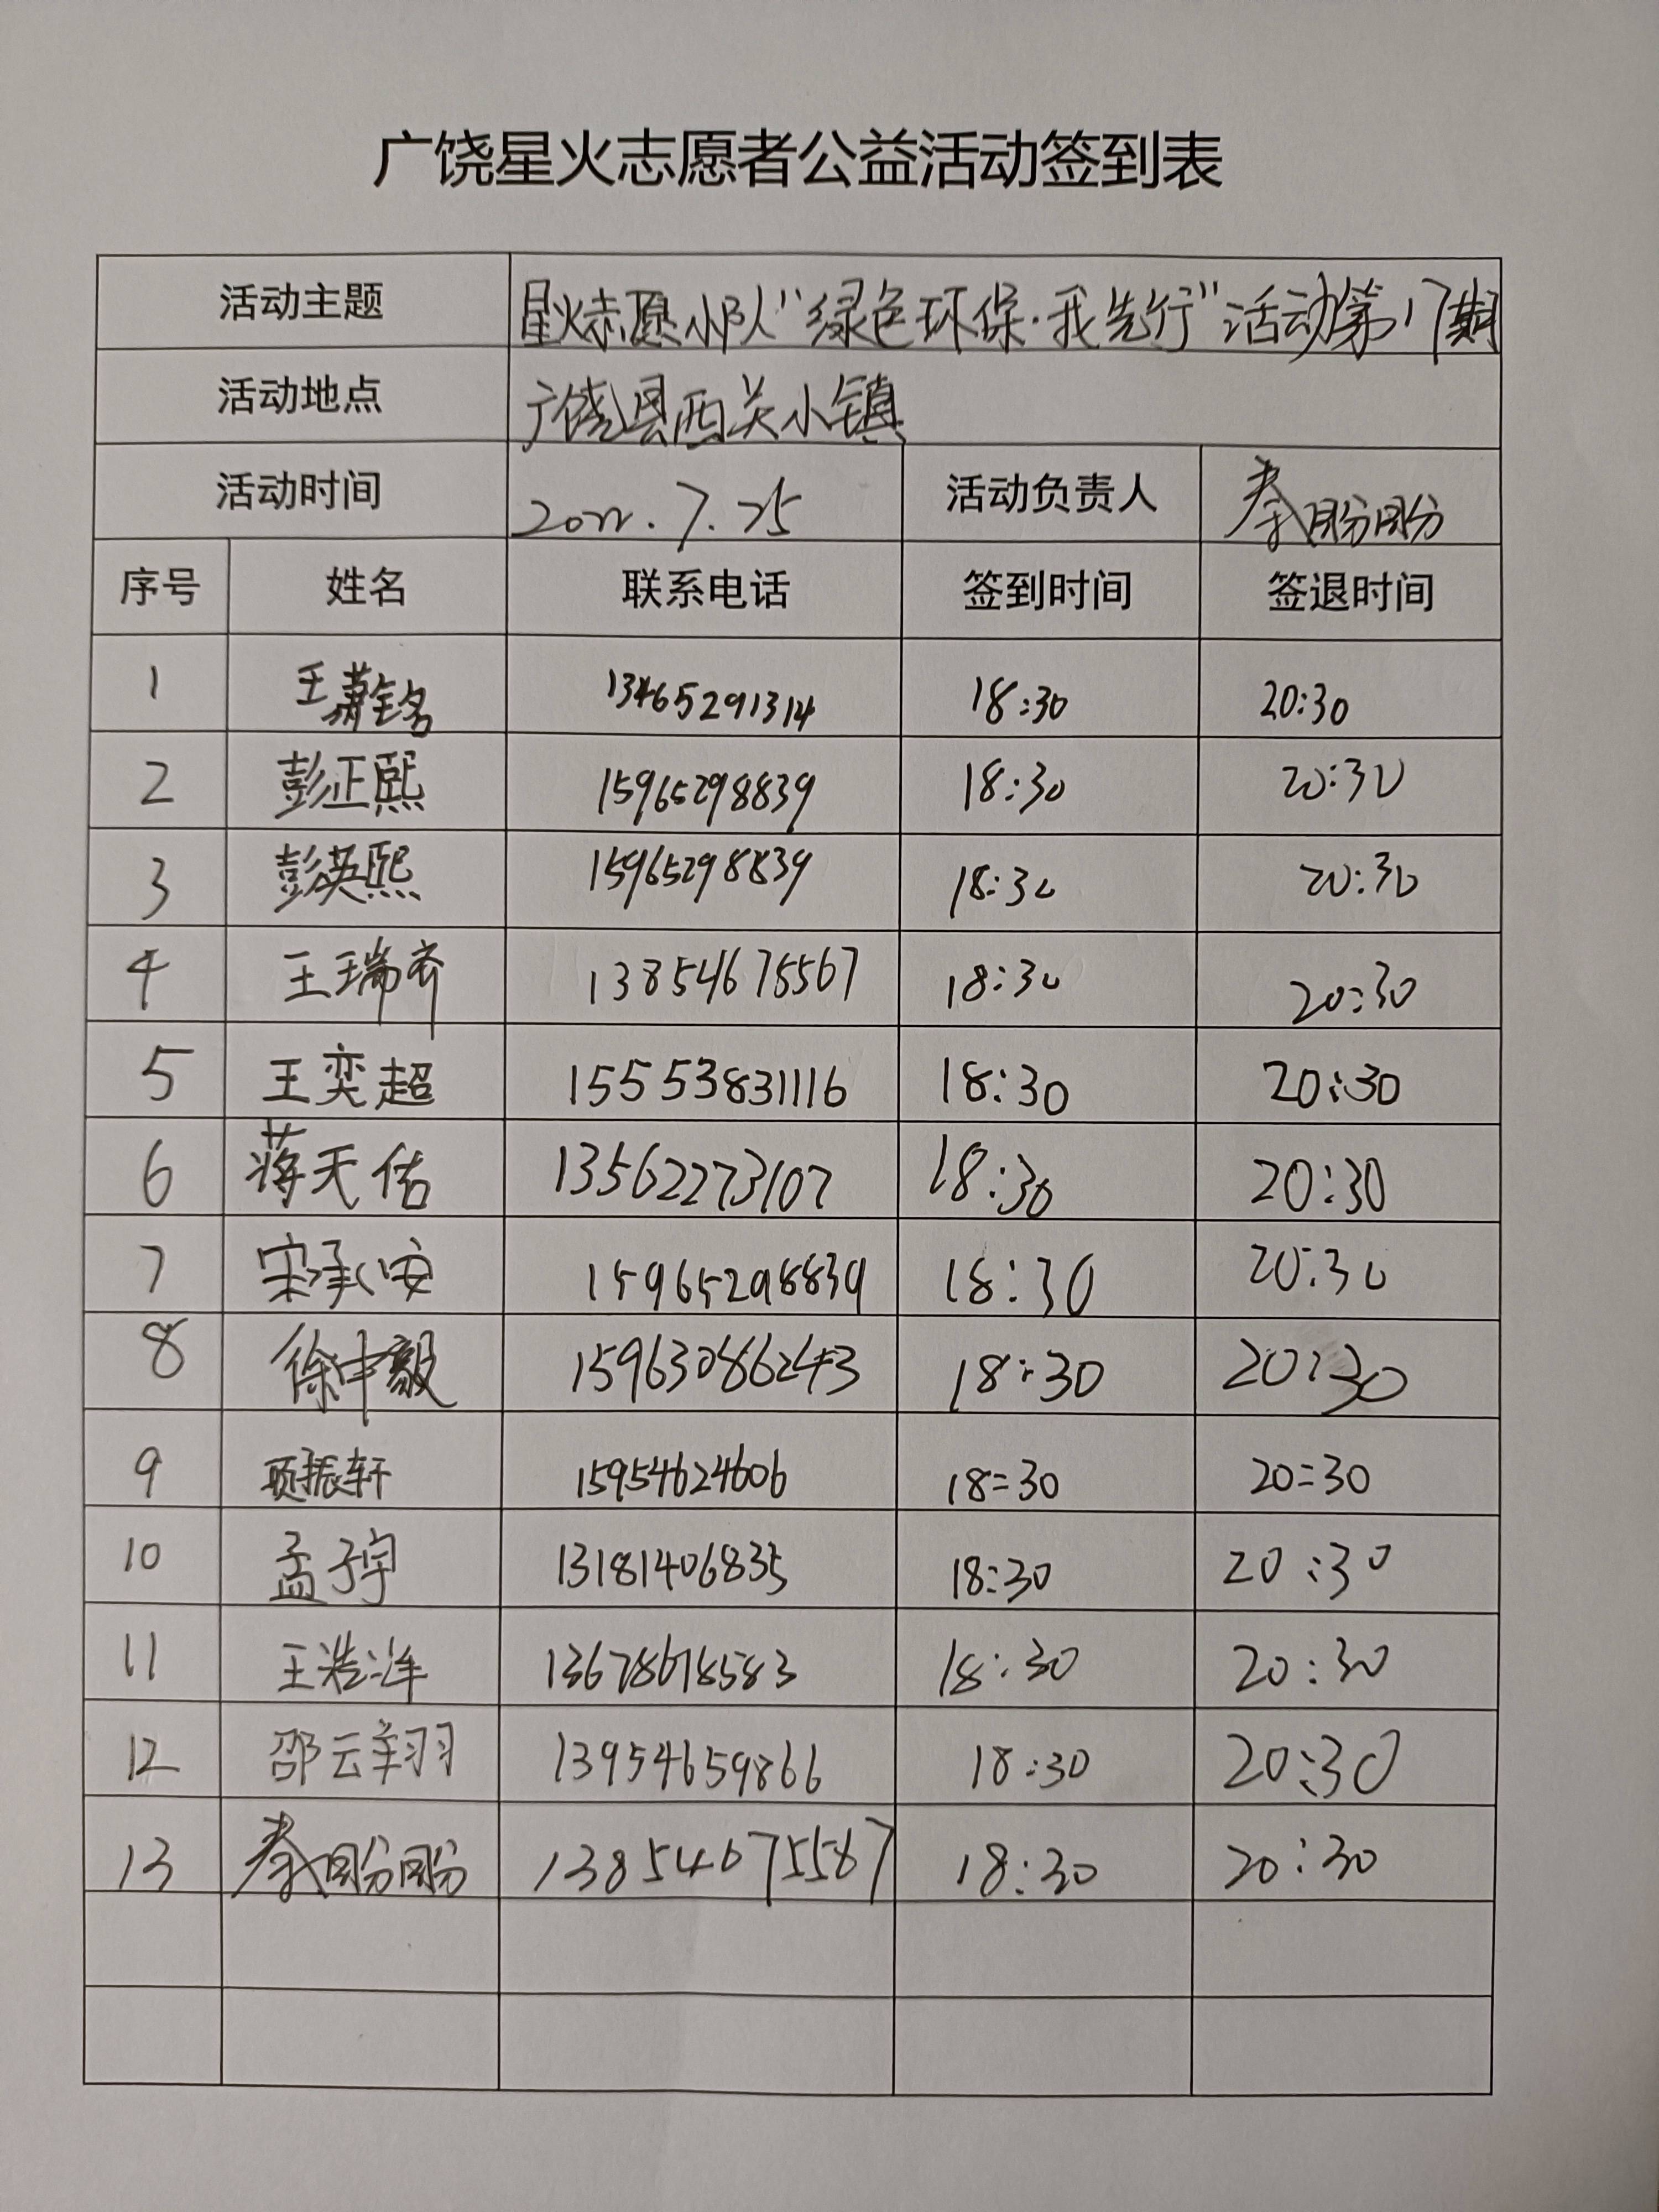 广饶星火志愿者公益活动签到表
活动主题 星火志愿小队“绿色环保·我先行”活动第17期
活动地点 广饶县西关小镇
活动时间 2022.7.25 活动负责人 秦盼盼
序号 姓名 联系电话 签到时间 签退时间
1 王萧铭 13465291314 18:30 20:30
2 彭正熙 15965298839 18:30 20:30
3 彭英熙 15965298839 18:30 20:30
4 王瑞齐 13854675567 18:30 20:30
5 王奕超 15553831116 18:30 20:30
6 蒋天佑 13562273107 18:30 20:30
7 宋承安 15965298839 18:30 20:30
8 徐申毅 15963086243 18:30 20:30
9 项振轩 15954624606 18:30 20:30
10 孟子宇 13181406835 18:30 20:30
11 王浩洋 13678618583 18:30 20:30
12 邵云翔 13954659866 18:30 20:30
13 秦盼盼 13854675567 18:30 20:30